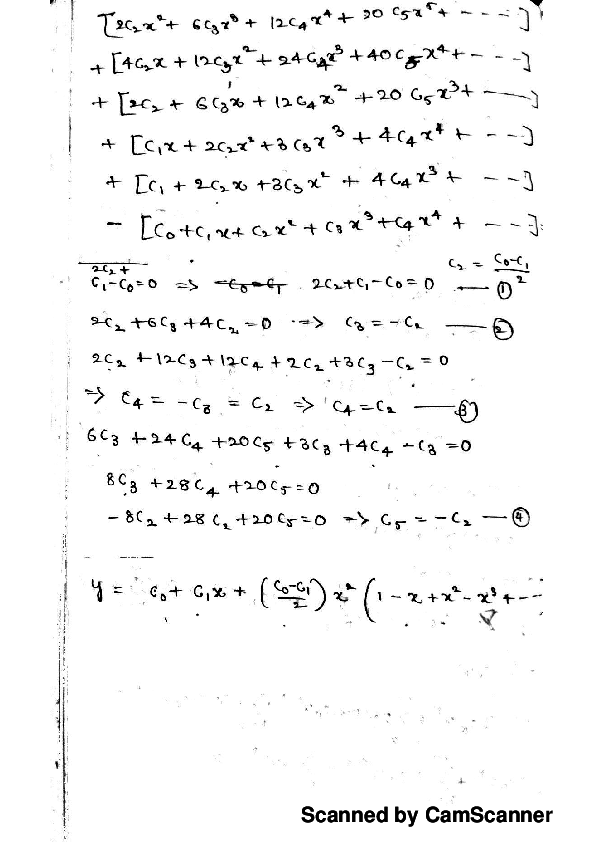 [2C₂x² + 6C₃x³ + 12C₄x⁴ + 20C₅x⁵ + ----]
+ [4C₂x + 12C₃x² + 24C₄x³ + 40C₅x⁴ + ----]
+ [2C₂ + 6C₃x + 12C₄x² + 20C₅x³ + ----]
+ [C₁x + 2C₂x² + 3C₃x³ + 4C₄x⁴ + ---]
+ [C₁ + 2C₂x + 3C₃x² + 4C₄x³ + ---]
- [C₀ + C₁x + C₂x² + C₃x³ + C₄x⁴ + ---]
2C₂ +
C₁ - C₀ = 0 => 2C₂ + C₁ - C₀ = 0 C₂ = (C₀ - C₁)/2 — ①
2C₂ + 6C₃ + 4C₂ = 0 => C₃ = -C₂ — ②
2C₂ + 12C₃ + 12C₄ + 2C₂ + 3C₃ - C₂ = 0
=> C₄ = -C₃ = C₂ => C₄ = C₂ — ③
6C₃ + 24C₄ + 20C₅ + 3C₃ + 4C₄ - C₃ = 0
8C₃ + 28C₄ + 20C₅ = 0
-8C₂ + 28C₂ + 20C₅ = 0 => C₅ = -C₂ — ④
y = C₀ + C₁x + ((C₀ - C₁)/2) x² (1 - x + x² - x³ + ---
Scanned by CamScanner